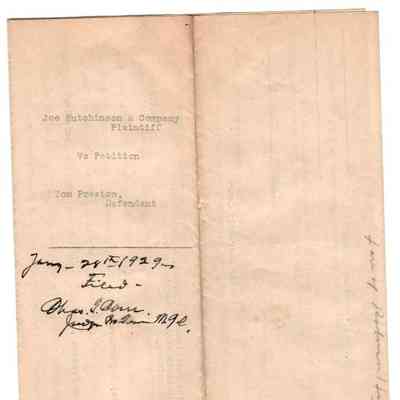 Joe Hutchinson & Company
Plaintiff
Vs Petition
Tom Preston,
Defendant
Jany - 28th 1929
Filed -
Chas.
Judge